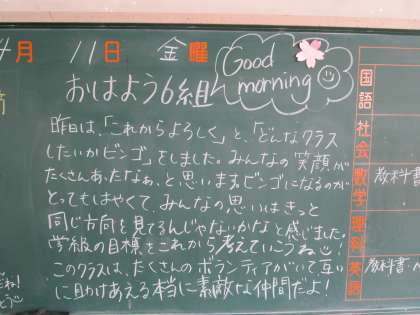 4月 11日 金曜
Good morning
おはよう6組
昨日は、「これからよろしく」と、「どんなクラス
したいかビンゴ」をしました。みんなの笑顔が
たくさんあったなぁ、と思います。ビンゴになるのが
とってもはやくて、みんなの思いはきっと
同じ方向を見てるんじゃないかなと感じました。
学級の目標をこれから考えていこうね!
このクラスは、たくさんのボランティアがいて互い
に助けあえる本当に素敵な仲間だよ!
国語
社会
数学 教科書
理科
英語 教科書・